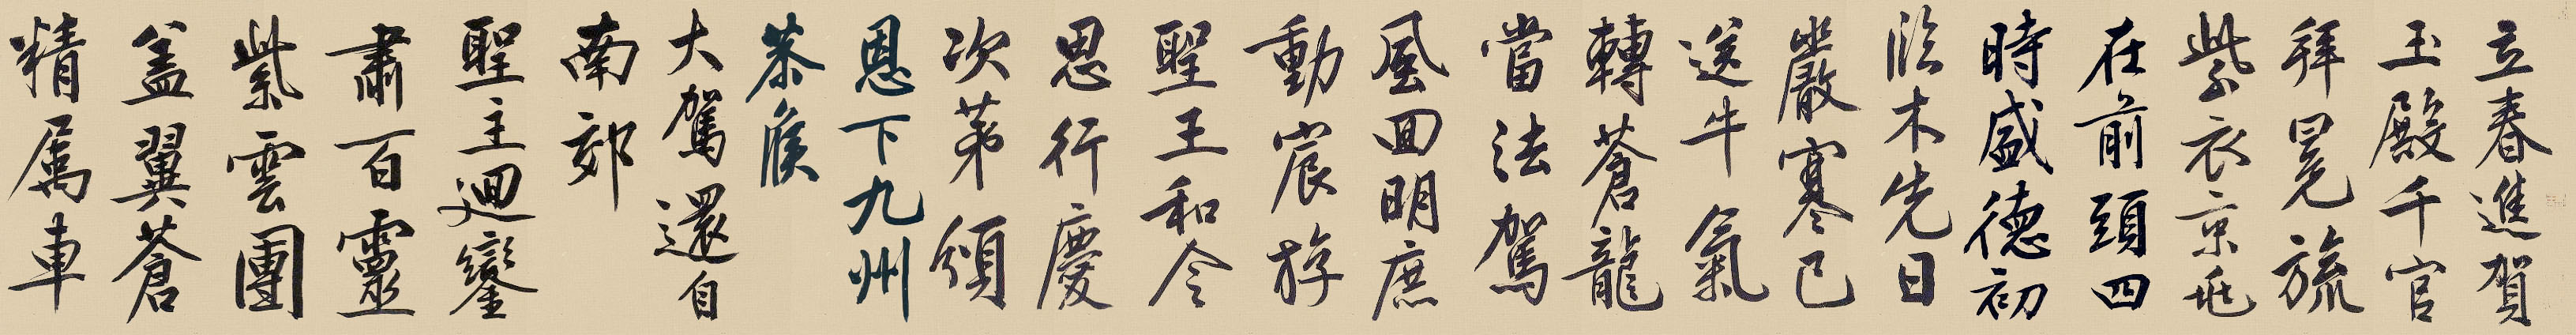 立春進賀
玉殿千官
拜冕旒
紫衣京兆
在前頭四
時盛德初
臨木先日
嚴寒已
送牛氣
轉蒼龍
當法駕
風回明庶
動宸游
聖王和令
思行慶
次第頒
恩下九州
恭候
大駕還自
南郊
聖主迴鑾
肅百靈
紫雲團
盖翼蒼
精属車